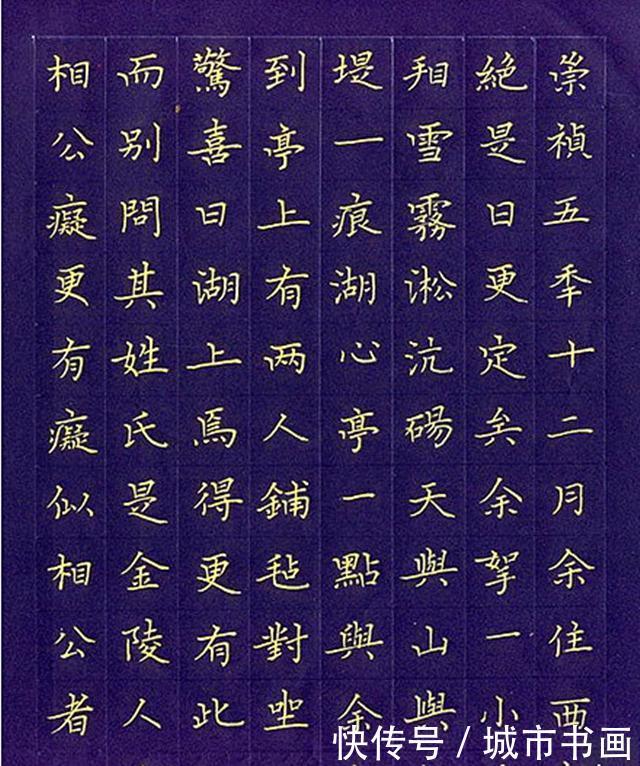 崇禎五季十二月余住西
絕是日更定矣余拏一小
相雪霧淞沆碭天與山與
堤一痕湖心亭一點與余
到亭上有两人鋪毡對坐
驚喜曰湖上焉得更有此
而别問其姓氏是金陵人
相公癡更有癡似相公者
快传号 / 城市书画